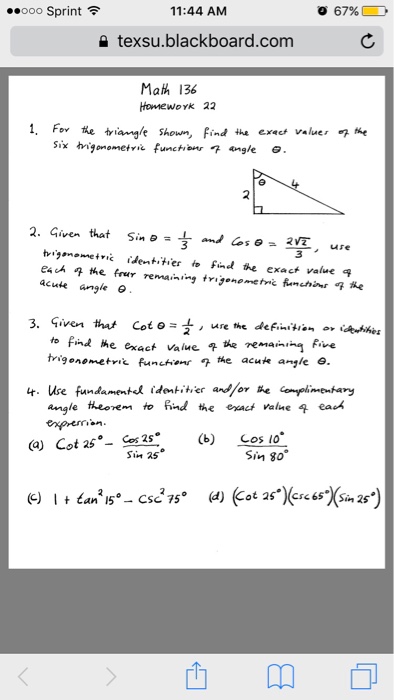 Sprint 11:44 AM 67%
texsu.blackboard.com
Math 136
Homework 22
1. For the triangle shown, find the exact values of the
six trigonometric functions of angle θ.
θ 4
2
2. Given that Sin θ = 1/3 and Cos θ = 2√2/3, use
trigonometric identities to find the exact value of
each of the four remaining trigonometric functions of the
acute angle θ.
3. Given that Cot θ = 1/2, use the definition or identities
to find the exact value of the remaining five
trigonometric functions of the acute angle θ.
4. Use fundamental identities and/or the complimentary
angle theorem to find the exact value of each
expression.
(a) Cot 25° - Cos 25°/Sin 25° (b) Cos 10°/Sin 80°
(c) 1 + tan² 15° - csc² 75° (d) (Cot 25°)(csc 65°)(sin 25°)